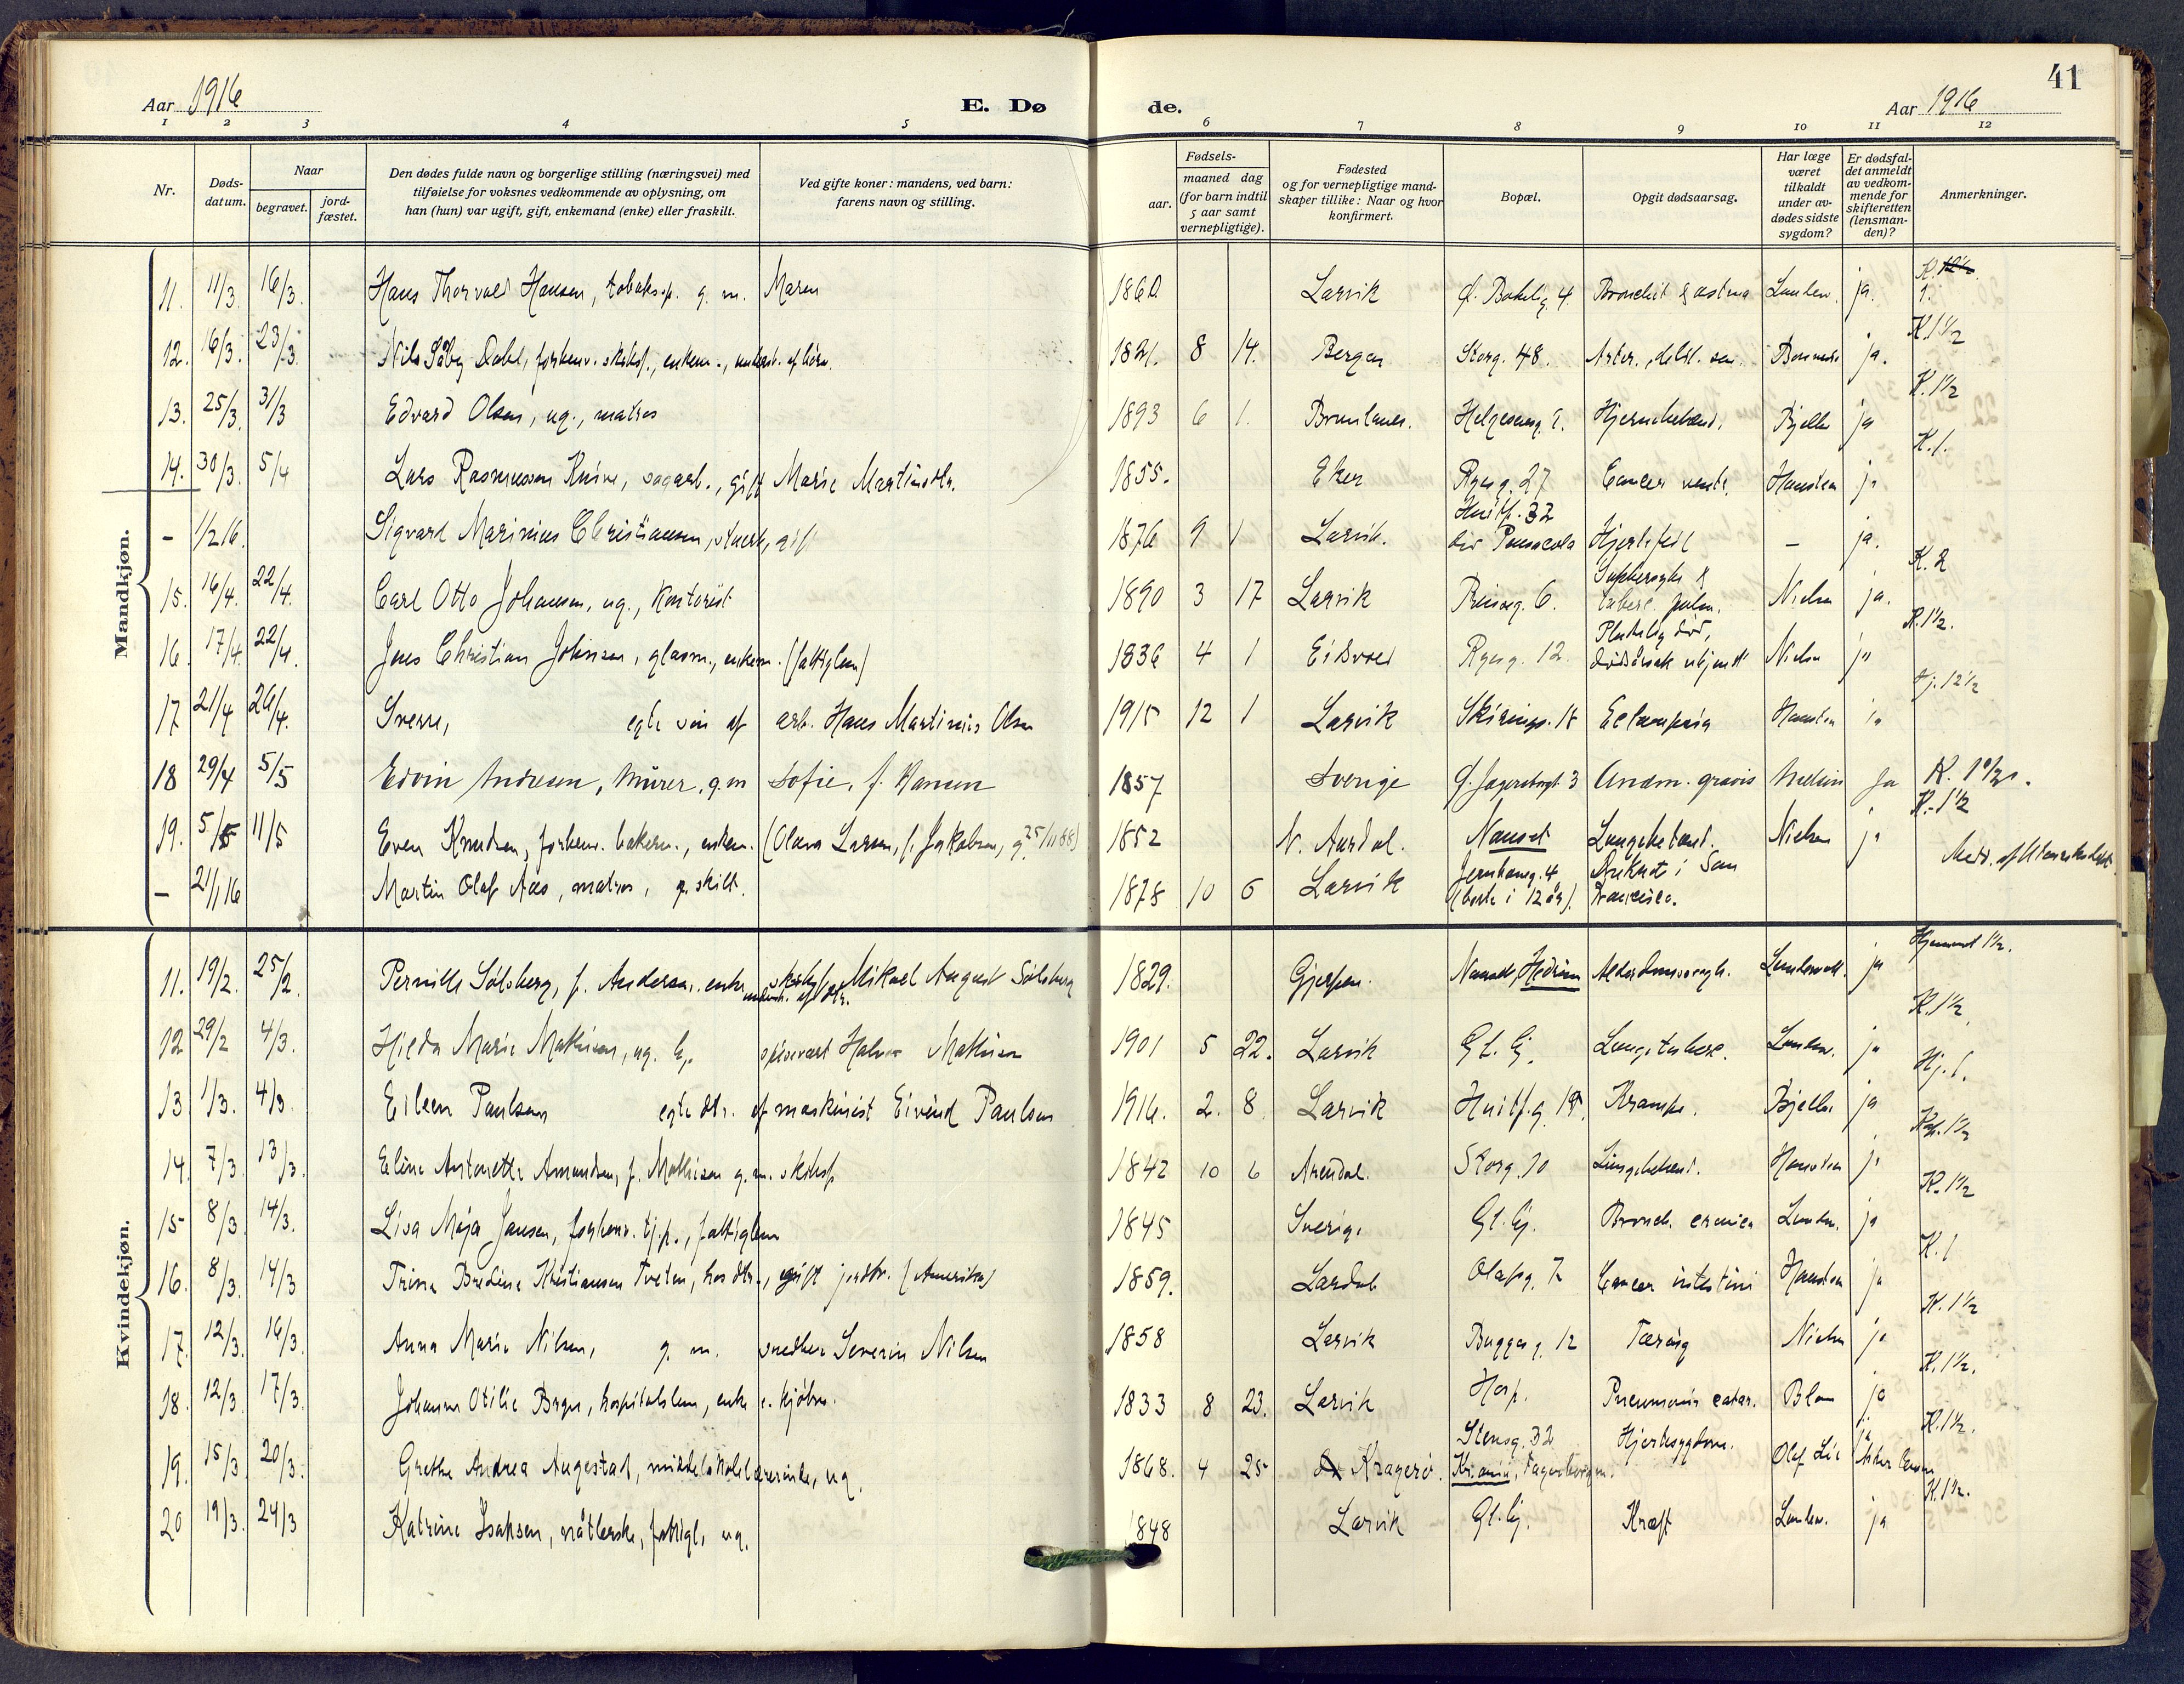 41
Aar 1916
E. Dø
de.
Aar 1916
1 2 3 4 5 6 7 8 9 10 11 12
Nr.
Døds-datum.
Naar
begravet.
jord-fæstet.
Den dødes fulde navn og borgerlige stilling (næringsvei) med
tilføielse for voksnes vedkommende av oplysning, om
han (hun) var ugift, gift, enkemand (enke) eller fraskilt.
Ved gifte koner: mandens, ved barn:
farens navn og stilling.
Fødsels-
aar.
maaned dag
(for barn indtil
5 aar samt
vernepligtige).
Fødested
og for vernepligtige mand-
skaper tillike: Naar og hvor
konfirmert.
Bopæl.
Opgit dødsaarsag.
Har læge
været
tilkaldt
under av-
dødes sidste
sygdom?
Er dødsfal-
det anmeldt
av vedkom-
mende for
skifteretten
(lensman-
den)?
Anmerkninger.
Mandkjøn.
11. 11/3. 16/3. Hans Thorvald Hansen, tobaksp. g. m. Maren 1860. Larvik Ø. Bøkelig. 4 Bronchit & astma ja. K. 1.
12. 16/3. 23/3. Nils Dahl, forhenv. skibsf., enkem., 1821. 8 14. Bergen Storg. 48. ja. K. 1½
13. 25/3. 31/3 Edvard Olsen, ug., matros 1893 6 1. Brunlanes. Helgesensg. Hjernebetænd. Bjelke ja K. 1½
14. 30/3. 5/4 Lars Rasmussen, sagarb., gift Marie Martinsdtr. 1855. Eker Ryesg. 27 Cancer ventr. Hansten ja K. 1.
– 1/2 16. Sigvard Marinius Christiansen, gift 1876 9 1 Larvik. Huitf. 32 død Pensacola Hjertefeil – ja.
15. 16/4. 22/4. Carl Otto Johansen, ug., kontorist 1890 3 17 Larvik Prinseg. 6. Sukkersyke & tuberc. pulm. Nielsen ja. K. 2
16. 17/4. 22/4. Jens Christian Johnsen, glasm., enkem. (fattiglem) 1836 4 1 Eidsvold Ryesg. 12. Pludselig død, dødsårsak ukjendt Nielsen ja K. 1½.
17 21/4 26/4. Sverre, egte søn af arb. Hans Martinius Olsen 1915 12 1 Larvik Skiringss. 18 Eclampsia Hansten ja Hj. 12½
18 29/4 5/5 Edvin Andresen, murer, g. m Sofie, f. Hansen 1857 Sverige 3 Anæm. gravis Nielsen Ja K. 1½.
19. 5/5 11/5 Even Knudsen, forhenv. bakerm., enkem. (Olava Larsen, f. Jakobsen, g. 25/11 88) 1852 N. Aurdal. Nanset Lungebetænd. Nielsen ja K. 1½
– 21/1 16 Martin Olaf Aas, matros, fraskilt. 1878 10 6 Larvik Jernbaneg. 4 (borte i 12 år). Druknet i San Francisco. Medd. af
Kvindekjøn.
11. 19/2. 25/2. Pernille Sølsberg, f. Andersen, enke skibsf. Mikael August Sølsberg underst. af dtr. 1829. Gjerpen. Nanset, Hedrum Alderdomssvagh. ja Hjemmet 1½.
12 29/2 4/3. Hilda Marie Mathisen, ug. spisevært Halvor Mathisen 1901 5 22. Larvik Gl. Lungetuberc. ja K. 1½
13 1/3. 4/3. Eileen Paulsen egte dtr. af maskinist Eivind Paulsen 1916. 2. 8. Larvik Huitf.g. 18. Krampe. Bjelke ja Hj. 1.
14. 7/3. 13/3. Eline Antonette Amundsen, f. Mathisen g. m. skibsf. 1842 10 6 Arendal. Storg. 70 Lungebetænd. Hansten ja Kap. 1½
15 8/3. 14/3. Lisa Maja Jansen, forhenv. tj.p., fattiglem 1845 Sverige Gl. Bronch. cronica ja K. 1½
16. 8/3. 14/3 Trine Bredine Kristiansen Tveten, hos dtr., gift jordbr. (Amerika) 1859. Lardal Olafsg. 7 Cancer intestini Hansten ja K. 1
17. 12/3. 16/3. Anna Marie Nilsen, g. m. snedker Severin Nilsen 1858 Larvik Buggesg. 12 Tæring Nielsen ja K. 1½
18. 12/3. 17/3. Johanne Otilie Bryn, hospitalslem, enke e. kjøbm. 1833 8 23. Larvik Hosp. Pneumonia catar. Blom ja K. 1½.
19. 15/3 20/3. Grethe Andrea Augestad, middelskolelærerinde, ug. 1868. 4 25 Kragerø. Stensg. 32 Kr.ania, Fagerborg m. Hjertesygdom. Olaf Lie K. 1½.
20 19/3. 24/3 Katrine Isaksen, nåtlerske, fattigl. ug. 1848 Larvik Gl. Kræft ja K. 1½.